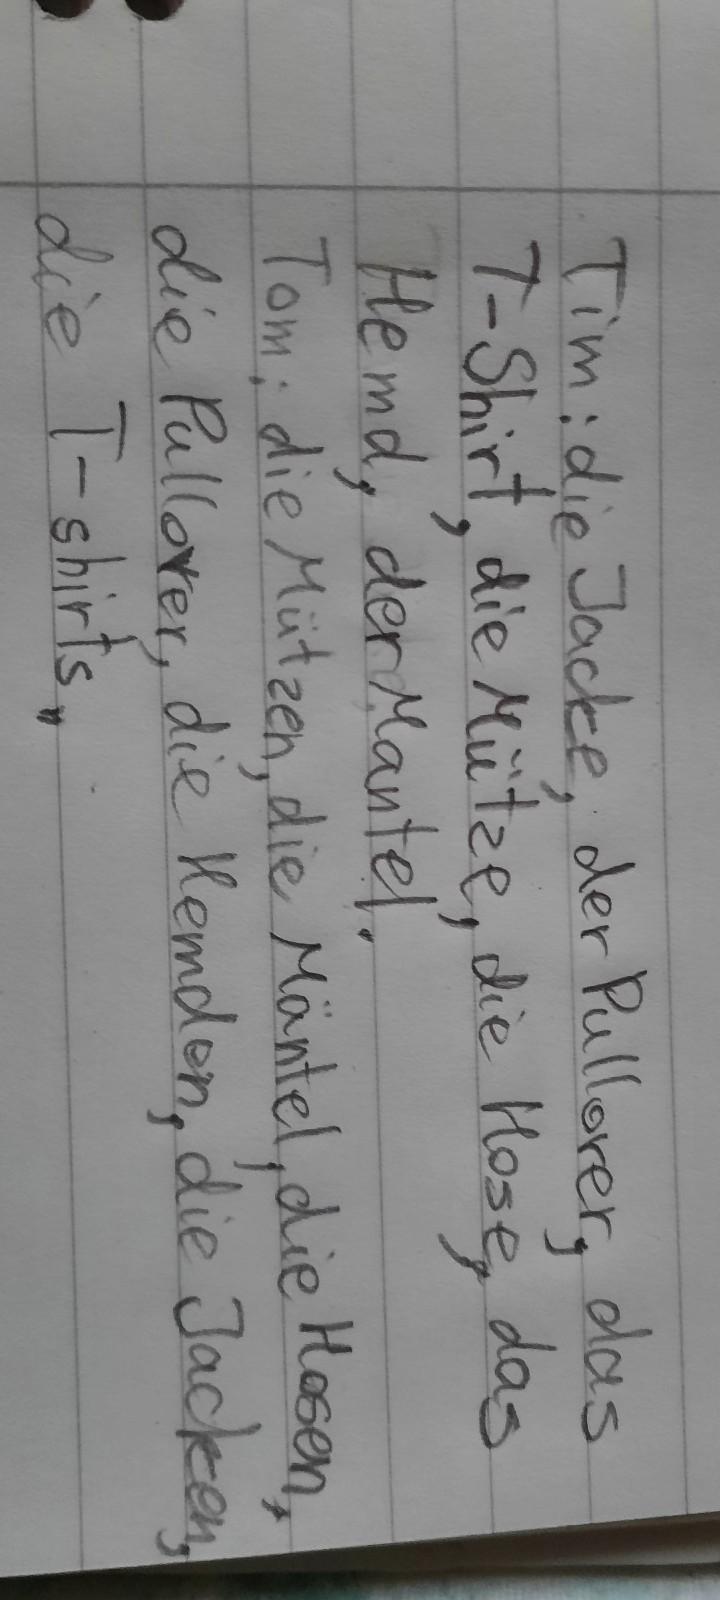 Tim: die Jacke, der Pullover, das
T-Shirt, die Mütze, die Hose, das
Hemd, der Mantel.
Tom: die Mützen, die Mäntel, die Hosen,
die Pullover, die Hemden, die Jacken,
die T-shirts,,